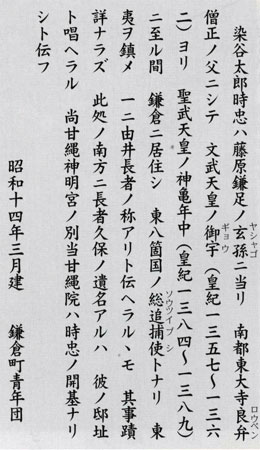 染谷太郎時忠ハ藤原鎌足ノ玄孫ニ当リ　南都東大寺良弁
僧正ノ父ニシテ　文武天皇ノ御宇（皇紀一三五七～一三六
二）ヨリ　聖武天皇ノ神亀年中（皇紀一三八四～一三八九）
ニ至ル間　鎌倉ニ居住シ　東八箇国ノ総追捕使トナリ　東
夷ヲ鎮メ　一ニ由井長者ノ称アリト伝ヘラルヽモ　其事蹟
詳ナラズ　此処ノ南方ニ長者久保ノ遺名アルハ　彼ノ邸址
ト唱ヘラル　尚甘縄神明宮ノ別当甘縄院ハ時忠ノ開基ナリ
シト伝フ
昭和十四年三月建　鎌倉町青年団
ヤシャゴ
ロウベン
ギョウ
ソウツイブシ